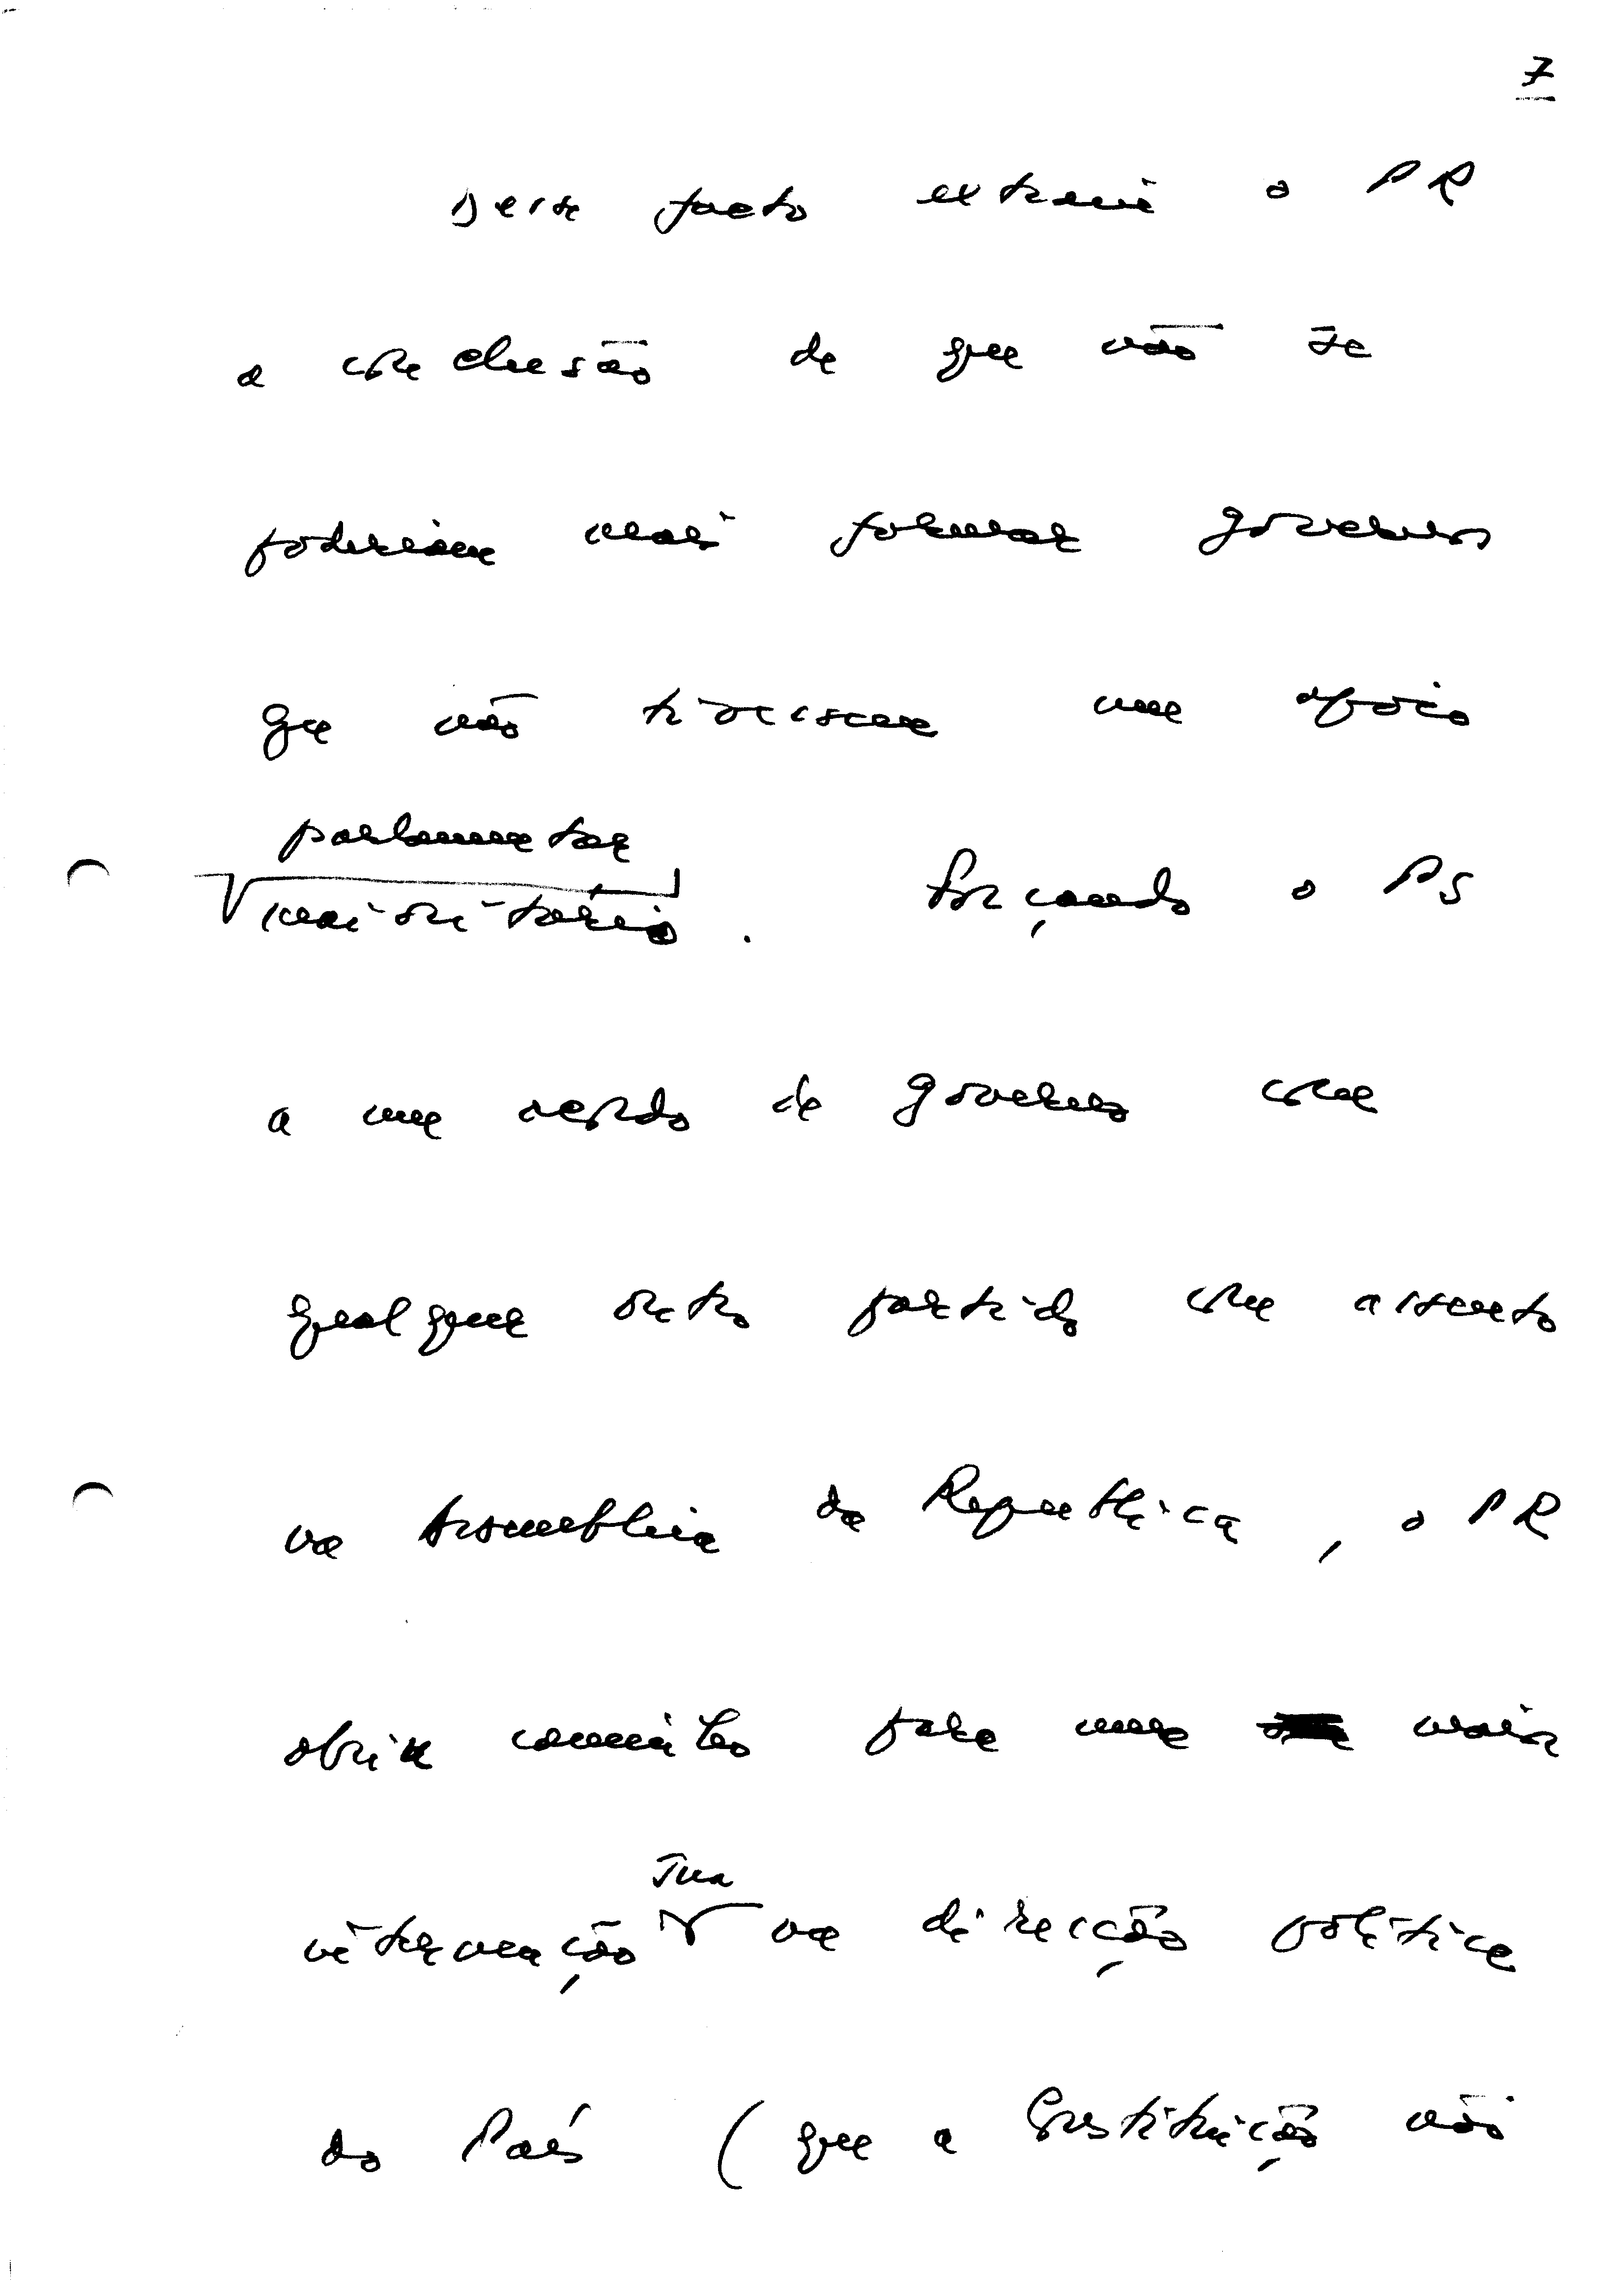 7
Deste facto extraiu o PR
a conclusão de que não se
poderiam mais formar governos
que não tivessem um apoio
parlamentar
maioritário. Forçando o PS
a um acordo de governo com
qualquer outro partido com assento
na Assembleia da República, o PR
abriu caminho para uma maior
intervenção sua na direcção política
do País (que a Constituição não